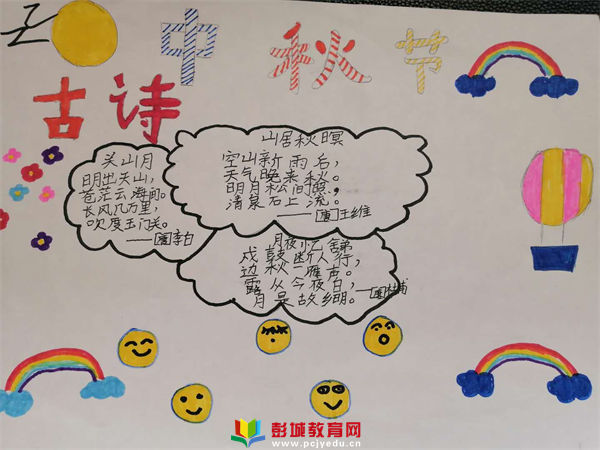 中秋节
古诗
山居秋暝
空山新雨后，
天气晚来秋。
明月松间照，
清泉石上流。
——[唐]王维
关山月
明月出天山，
苍茫云海间。
长风几万里，
吹度玉门关。
——[唐]李白
月夜忆舍弟
戍鼓断人行，
边秋一雁声。
露从今夜白，
月是故乡明。
——[唐]杜甫
彭城教育网
www.pcjyedu.cn